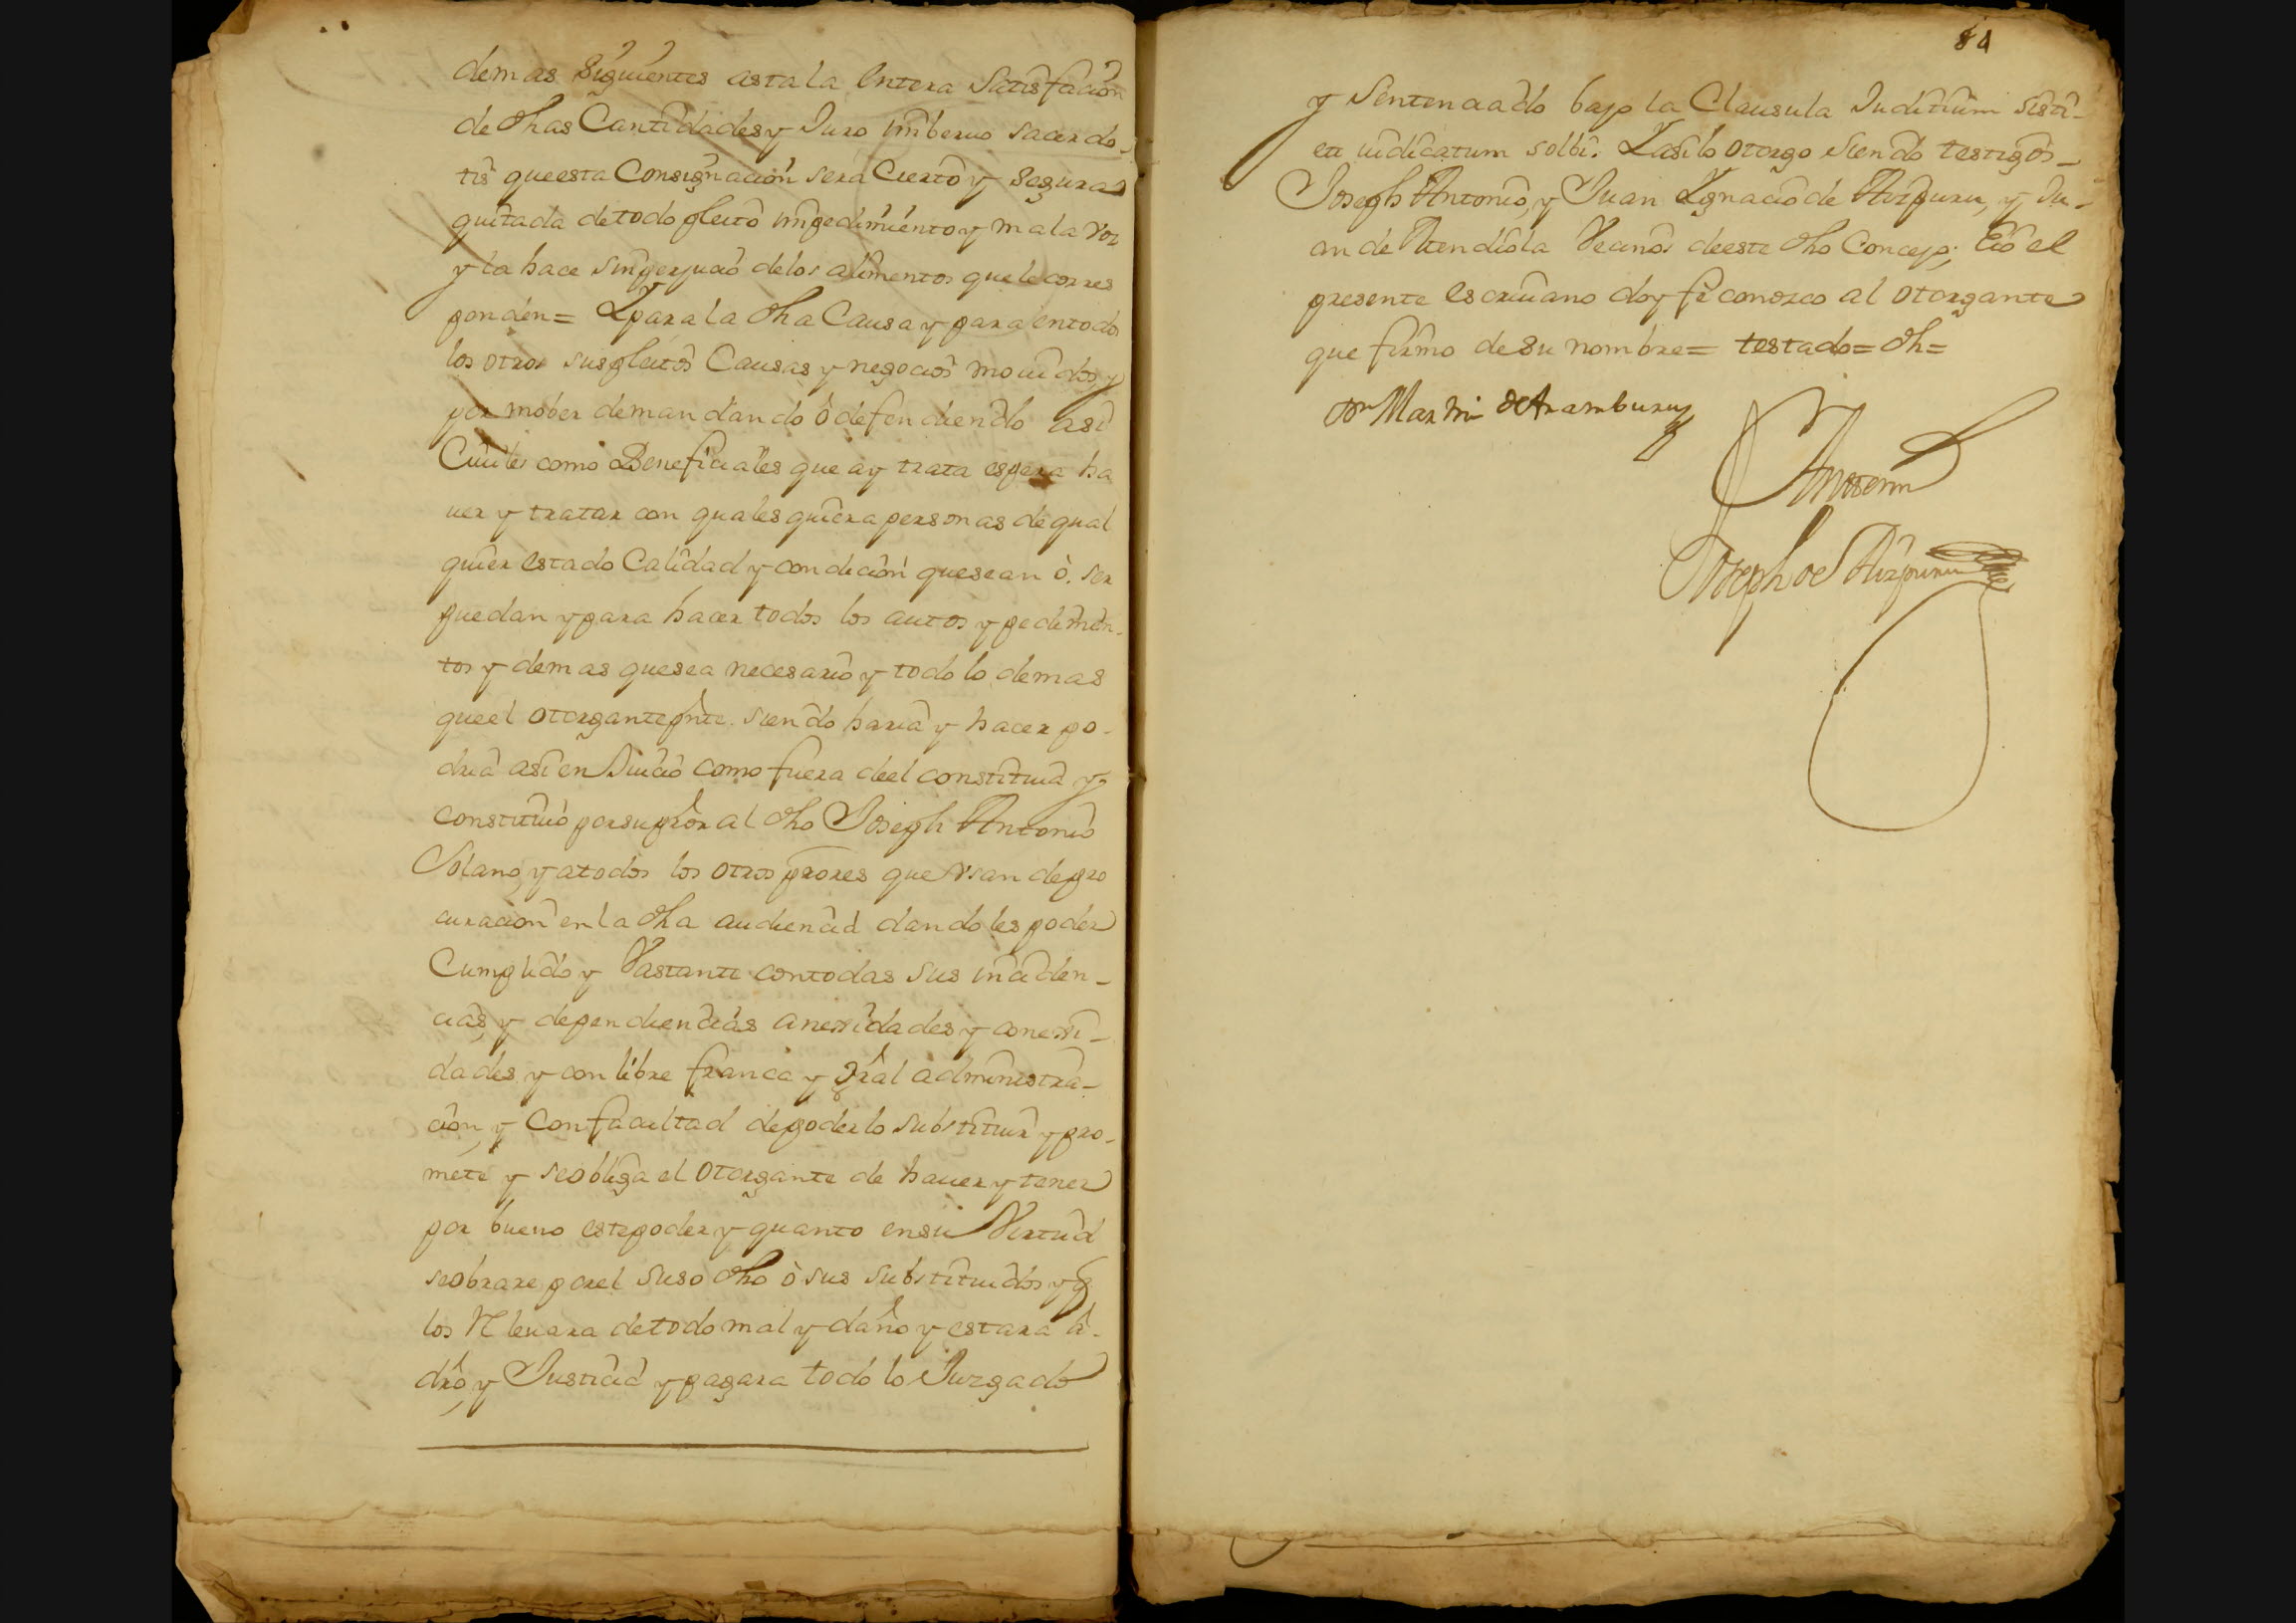 demas Siguientes asta la entera Satisfacion
de dhas Cantidades y Juro im berbo sacerdo-
tis que esta Consignacion sera Cierto y Segura
quitada de todo pleito impedimiento y mala voz
y la hace sin perjuicio de los alimentos que le corres
ponden = Y para la dha Causa y para en todos
los otros sus pleitos Causas y negocios mouidos, y
por mober demandando ô defendiendo asi
Ciuiles como Beneficiales que ay trata espera ha
uer y tratar con quales quiera personas de qual
quier estado Calidad y condicion que sean ò. ser
puedan y para hacer todos los autos y pedimen-
tos y demas que sea necesario y todo lo demas
que el otorgante pnte. siendo haria y hacer po-
dria asi en Juicio como fuera de el constituia y
constituió por su pror al dho Joseph Antonio
Solano, y a todos los otros prores que vsan de pro
curacion en la dha audiencia dandoles poder
Cumplido y Vastante con todas sus inciden-
cias, y dependiencias anexsidades y conexsi-
dades y con libre franca y gral administra-
cion, y Con facultad de poderlo substituir y pro-
mete y se obliga el otorgante de hauer y tener
por bueno este poder y quanto en su Virtud
se obrare por el suso dho ò sus substituidos y q
los Rleuara de todo mal y daño y estara à-
dro, y Justicia y pagara todo lo Juzgado
84
y Sentenciado bajo la Clausula Juditium sisti-
et iudicatum solbi. Y asi lo otorgo siendo testigos-
Joseph Antonio, y Juan Ygnacio de Aizpuru, y Ju-
an de Atendiola Vecinos de este dho Concejo; Eió el
presente escriuano doy fè conozco al otorgante
que firmo de su nombre = testado = dh =
Dn Martin de Aramburu
Ante mi
Joseph de Aizpuru